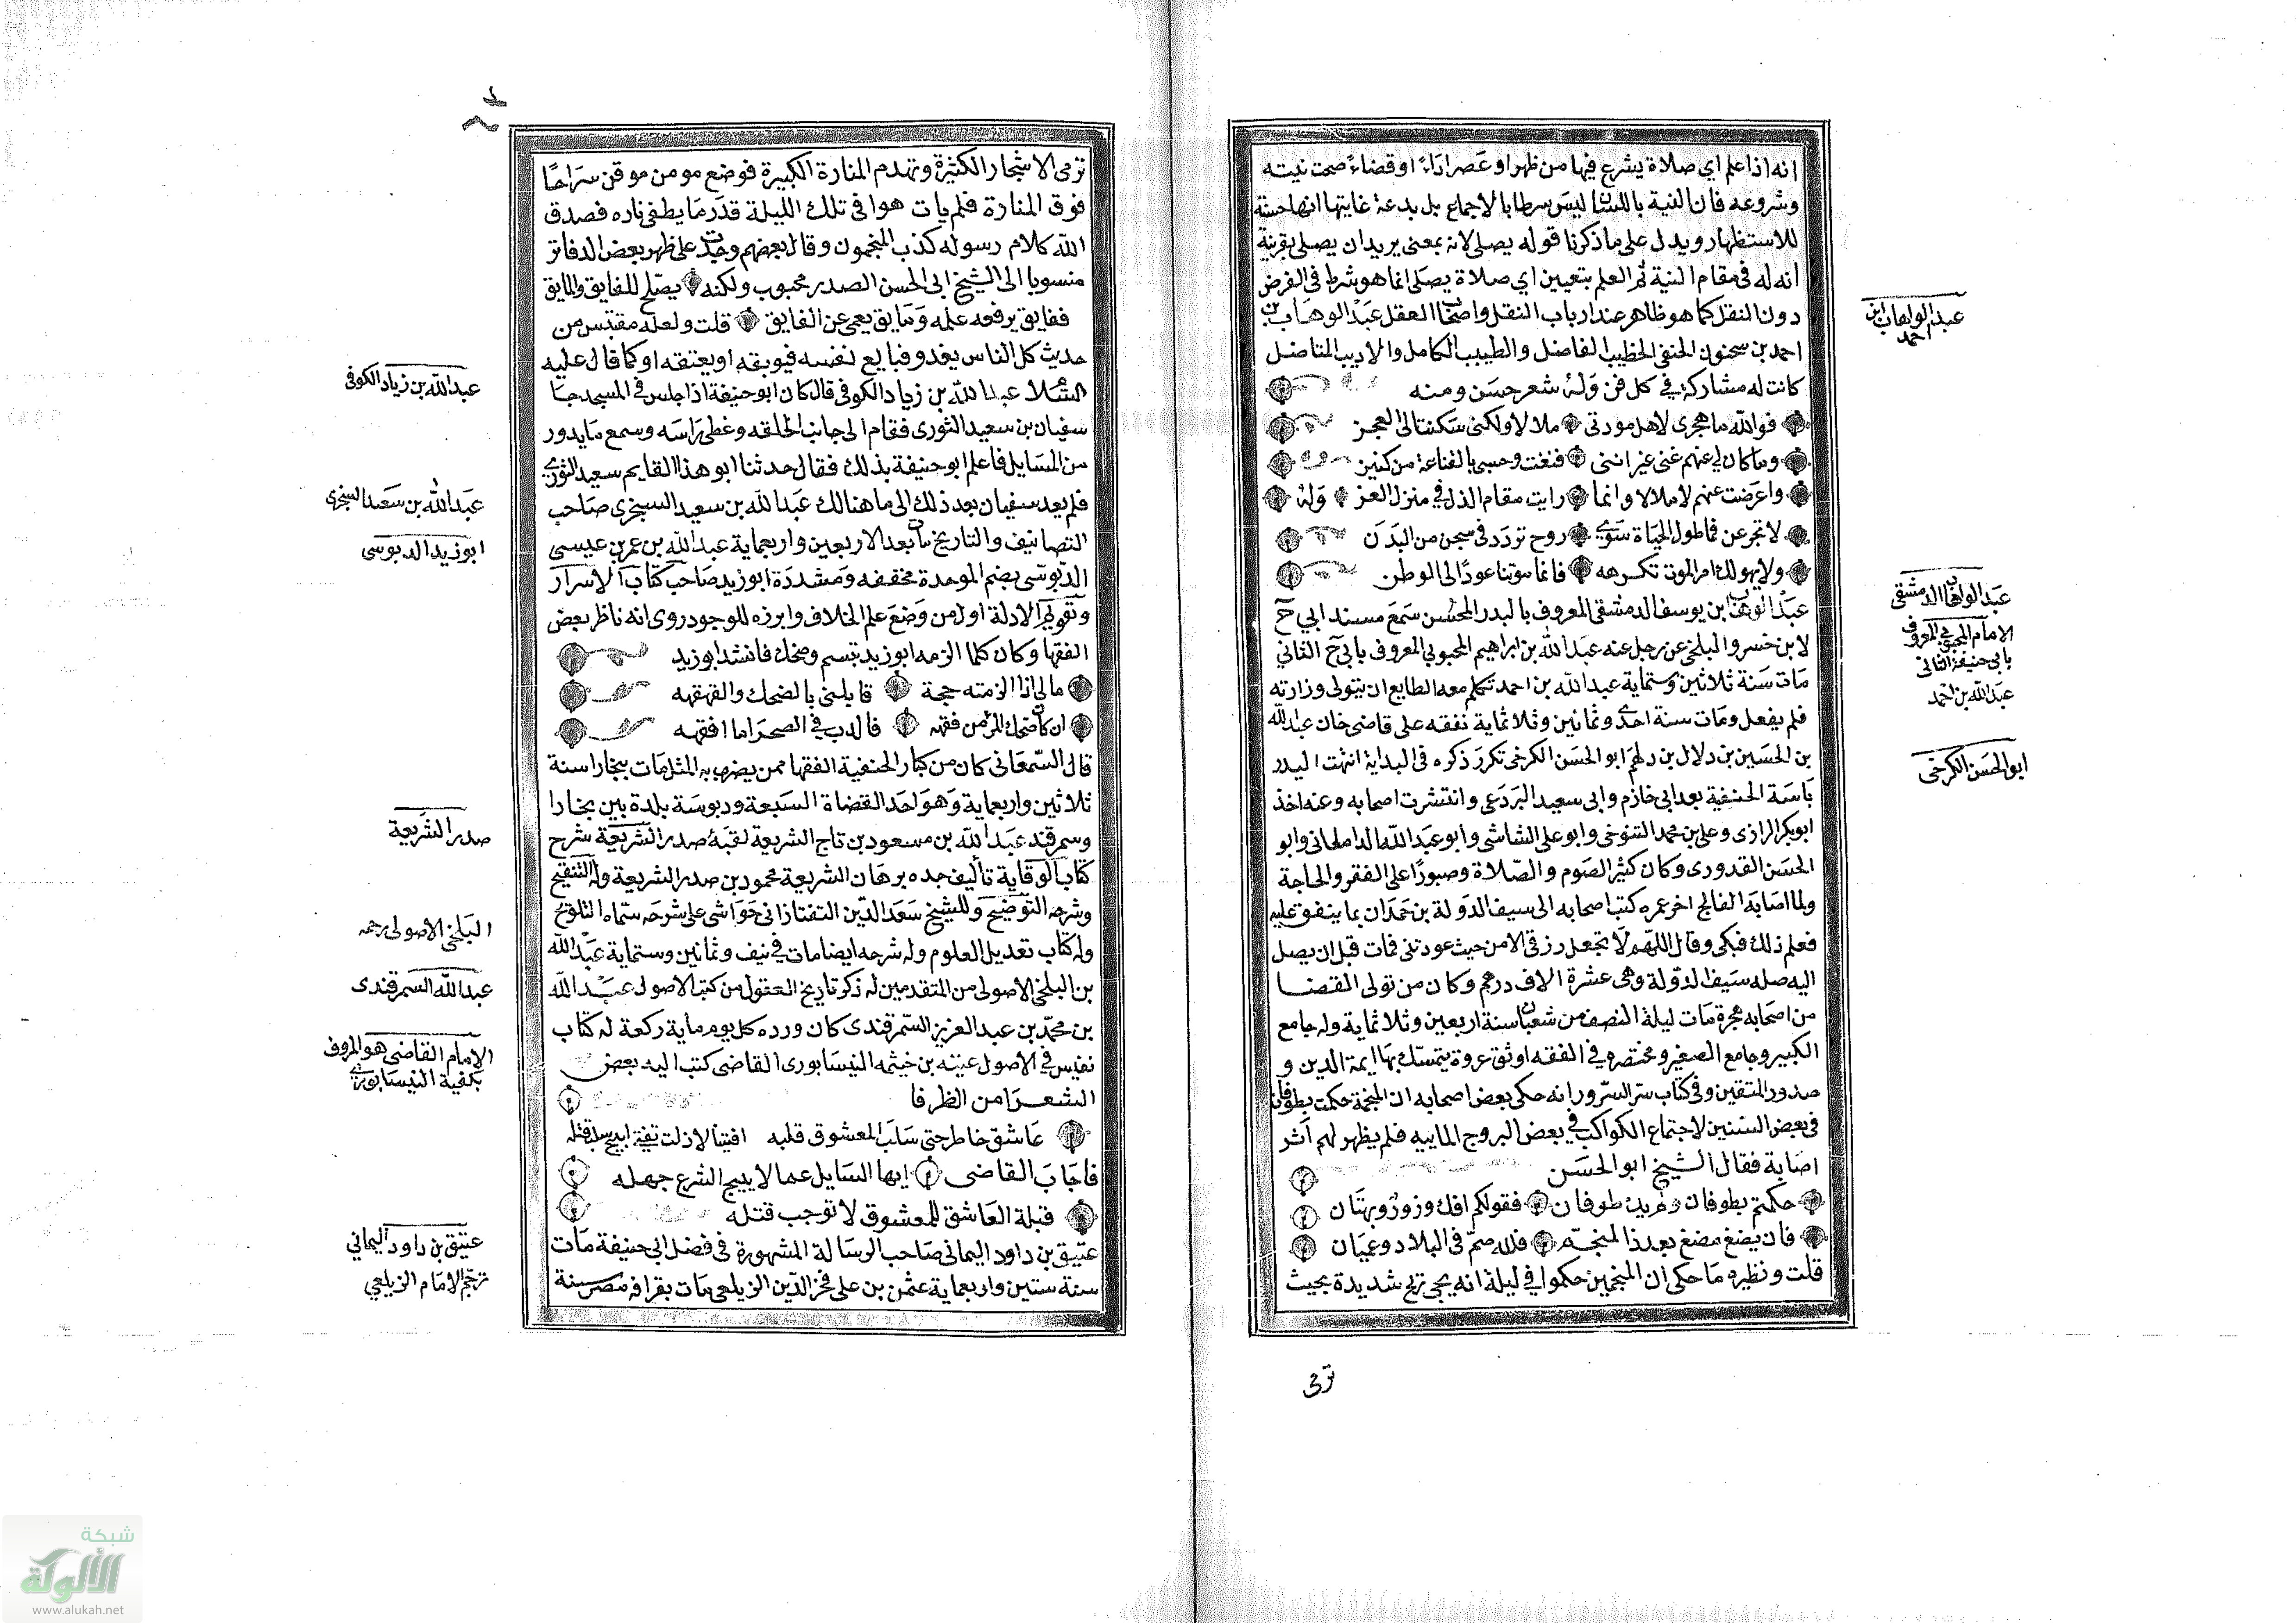 انه اذا علم اي صلاة يشرع فيها من ظهر او عصر اداءً او قضاءً صحت نيته
وشروعه فان النية باللسان ليس شرطا بالاجماع بل بدعة غايتها انها حسنة
للاستظهار ويدل على ما ذكرنا قوله يصلى لانه بمعنى يريد ان يصلى بقرينة
انه له فى مقام النية ثم العلم بتعيين اي صلاة يصلى انما هو شرط فى الفرض
دون النفل كما هو ظاهر عند ارباب النقل واصحاب العقل عبد الوهاب بن
احمد بن سحنون الحنفى الخطيب الفاضل والطبيب الكامل والاديب المتاضل
كانت له مشاركة في كل فن وله شعر حسن ومنه
فوالله ما هجرى لاهل مودتى ملالا ولكنى سكنت الى العجز
وما كان لي عنهم غنى غير اننى قنعت وحسبى بالقناعة من كنز
واعرضت عنهم لا ملالا وانما رايت مقام الذل في منزل العز وله
لا تجزعن فما طول الحياة سوى روح تردد فى سجن من البدن
ولا يهولك امر الموت تكرهه فانما موتنا عودًا الى الوطن
عبد الوهاب بن يوسف الدمشقى المعروف بالبدر المحسن سمع مسند ابي ح
لابن خسرو البلخى عن رجل عنه عبد الله بن ابراهيم المحبوبي المعروف بابي ح الثاني
مات سنة ثلاثين وستماية عبد الله بن احمد تكلم معه الطايع ان يتولى وزارته
فلم يفعل ومات سنة احدى وثمانين وثلاثماية تفقه على قاضى خان عبد الله
بن الحسين بن دلال بن دلهم ابو الحسن الكرخى تكرر ذكره فى البداية انتهت اليه
رياسة الحنفية بعد ابى خازم وابى سعيد البردعى وانتشرت اصحابه وعنه اخذ
ابو بكر الرازى وعلى بن محمد التنوخى وابو على الشاشى وابو عبد الله الدامغانى وابو
الحسن القدورى وكان كثير الصوم والصلاة وصبورًا على الفقر والحاجة
ولما اصابه الفالج اخر عمره كتب اصحابه الى سيف الدولة بن حمدان بما ينفق عليه
فعلم ذلك فبكى وقال اللهم لا تجعل رزقى الا من حيث عودتنى فمات قبل ان يصل
اليه صلة سيف الدولة وهى عشرة الاف درهم وكان من تولى القضا
من اصحابه هجره مات ليلة النصف من شعبان سنة اربعين وثلاثماية وله جامع
الكبير وجامع الصغير ومختصره في الفقه اوثق عروة يتمسك بها ايمة الدين و
صدور المتقين وفى كتاب سر السرور انه حكى بعض اصحابه ان المنجمة حكمت بطوفان
فى بعض السنين لاجتماع الكواكب في بعض البروج الماييه فلم يظهر لهم اثر
اصابة فقال الشيخ ابو الحسن
حكمتم بطوفان طوفان فقولكم افك وزور وبهتان
فان يضغ مضغ بعد ذا المنجمه فلله صم فى البلاد وعميان
قلت ونظيره ما حكى ان المنجمين حكموا في ليلة انه يجى ريح شديدة بحيث
ترمى
عبد الوهاب ابن
احمد
عبد الوهاب الدمشقى
الامام المحبوبي المعروف
بابى حنيفة الثانى
عبد الله بن احمد
ابو الحسن الكرخى
ترمى الاشجار الكثيرة وتهدم المنارة الكبيرة فوضع مومن موقن سراجًا
فوق المنارة فلم يات هوا فى تلك الليلة قدر ما يطفى ناره فصدق
الله كلام رسوله كذب المنجمون وقال بعضهم وجدت على ظهر بعض الدفاتر
منسوبا الى الشيخ ابى الحسن الصدر محبوب ولكنه يصلح للفايق والمايق
ففايق يرفعه علمه ومايق يعمى عن الفايق قلت ولعله مقتبس من
حديث كل الناس يغدو فبايع نفسه فموبقه او يعتقه او كما قال عليه
السلام عبد الله بن زياد الكوفى قال كان ابو حنيفة اذا جلس فى المسجد جا
سفيان بن سعيد الثورى فقام الى جانب الحلقه وغطى راسه وسمع ما يدور
من المسايل فاعلم ابو حنيفة بذلك فقال حدثنا ابو هذا القايم سعيد الثورى
فلم يعد سفيان بعد ذلك الى ما هنالك عبد الله بن سعيد السجزى صاحب
التصانيف والتاريخ مات بعد الاربعين واربعماية عبد الله بن عمر بن عيسى
الدبوسى بضم الموحدة مخففه ومشددة ابو زيد صاحب كتاب الاسرار
وتقويم الادلة اول من وضع علم الخلاف وابرزه للوجود روى انه ناظر بعض
الفقها وكان كلما الزمه ابو زيد تبسم وضحك فانشد ابو زيد
مالى اذا الزمته حجة قابلنى بالضحك والقهقهه
ان كان ضحك المرء من فقهه فالدب في الصحرا ما افقهه
قال السمعانى كان من كبار الحنفية الفقها ممن يضرب به المثل مات ببخارا سنة
ثلاثين واربعماية وهو احد القضاة السبعة ودبوسة بلدة بين بخارا
وسمرقند عبد الله بن مسعود بن تاج الشريعة لقبه صدر الشريعة شرح
كتاب الوقاية تأليف جده برهان الشريعة محمود بن صدر الشريعة وله التنقيح
وشرحه التوضيح وللشيخ سعد الدين التفتازانى حواشى على شرحه سماه التلويح
وله كتاب تعديل العلوم وله شرحه ايضا مات في نيف وثمانين وستماية عبد الله
بن البلخى الاصولى من المتقدمين له ذكر تاريخ العقول من كتب الاصول عبد الله
بن محمد بن عبد العزيز السمرقندى كان ورده كل يوم ماية ركعة له كتاب
نفيس في الاصول عتبه بن خيثمه النيسابورى القاضى كتب اليه بعض
الشعرا من الظرفا
عاشق خاطر حتى سلب المعشوق قلبه افتنا لا زلت
فاجاب القاضى ايها السايل عما لا يبيح الشرع جهله
قبلة العاشق للمعشوق لا توجب قتله
عتيق بن داود اليمانى صاحب الرسالة المشهورة فى فضل ابى حنيفة مات
سنة ستين واربعماية عثمن بن على فخر الدين الزيلعى مات بقرافة مصر سنة
عبد الله بن زياد الكوفى
عبد الله بن سعيد السجزى
ابو زيد الدبوسى
صدر الشريعة
البلخى الاصولى رحمه
عبد الله السمرقندى
الامام القاضى هو المعروف
النيسابورى
عتيق بن داود اليماني
ترجم الامام الزيلعي
شبكة
الألوكة
www.alukah.net